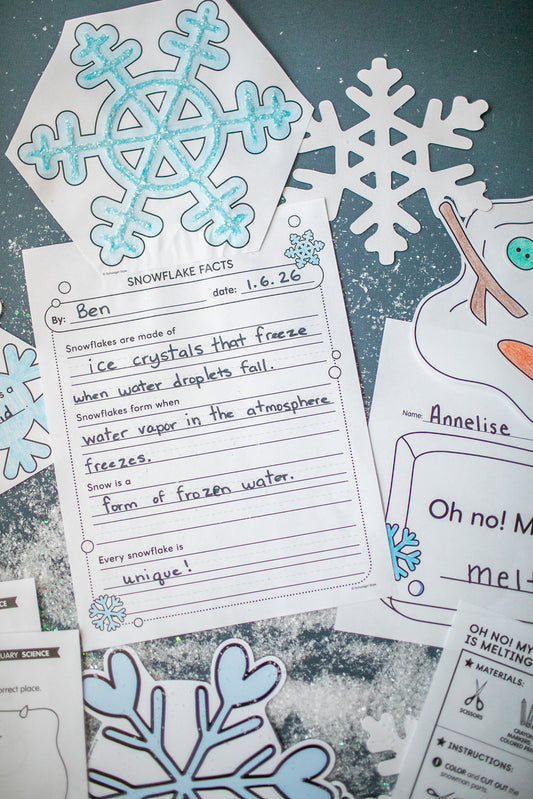 SNOWFLAKE FACTS
By: Ben date: 1.6.26
Snowflakes are made of
ice crystals that freeze
when water droplets fall.
Snowflakes form when
water vapor in the atmosphere
freezes.
Snow is a
form of frozen water.
Every snowflake is
unique!
s a
id
Name: Annelise
Oh no! M
melt
UARY SCIENCE
orrect place.
OH NO! MY
IS MELTING
★ MATERIALS:
SCISSORS
CRAYON
MARKERS
COLORED PEN
★ INSTRUCTIONS:
1 COLOR and CUT OUT the
snowman parts.